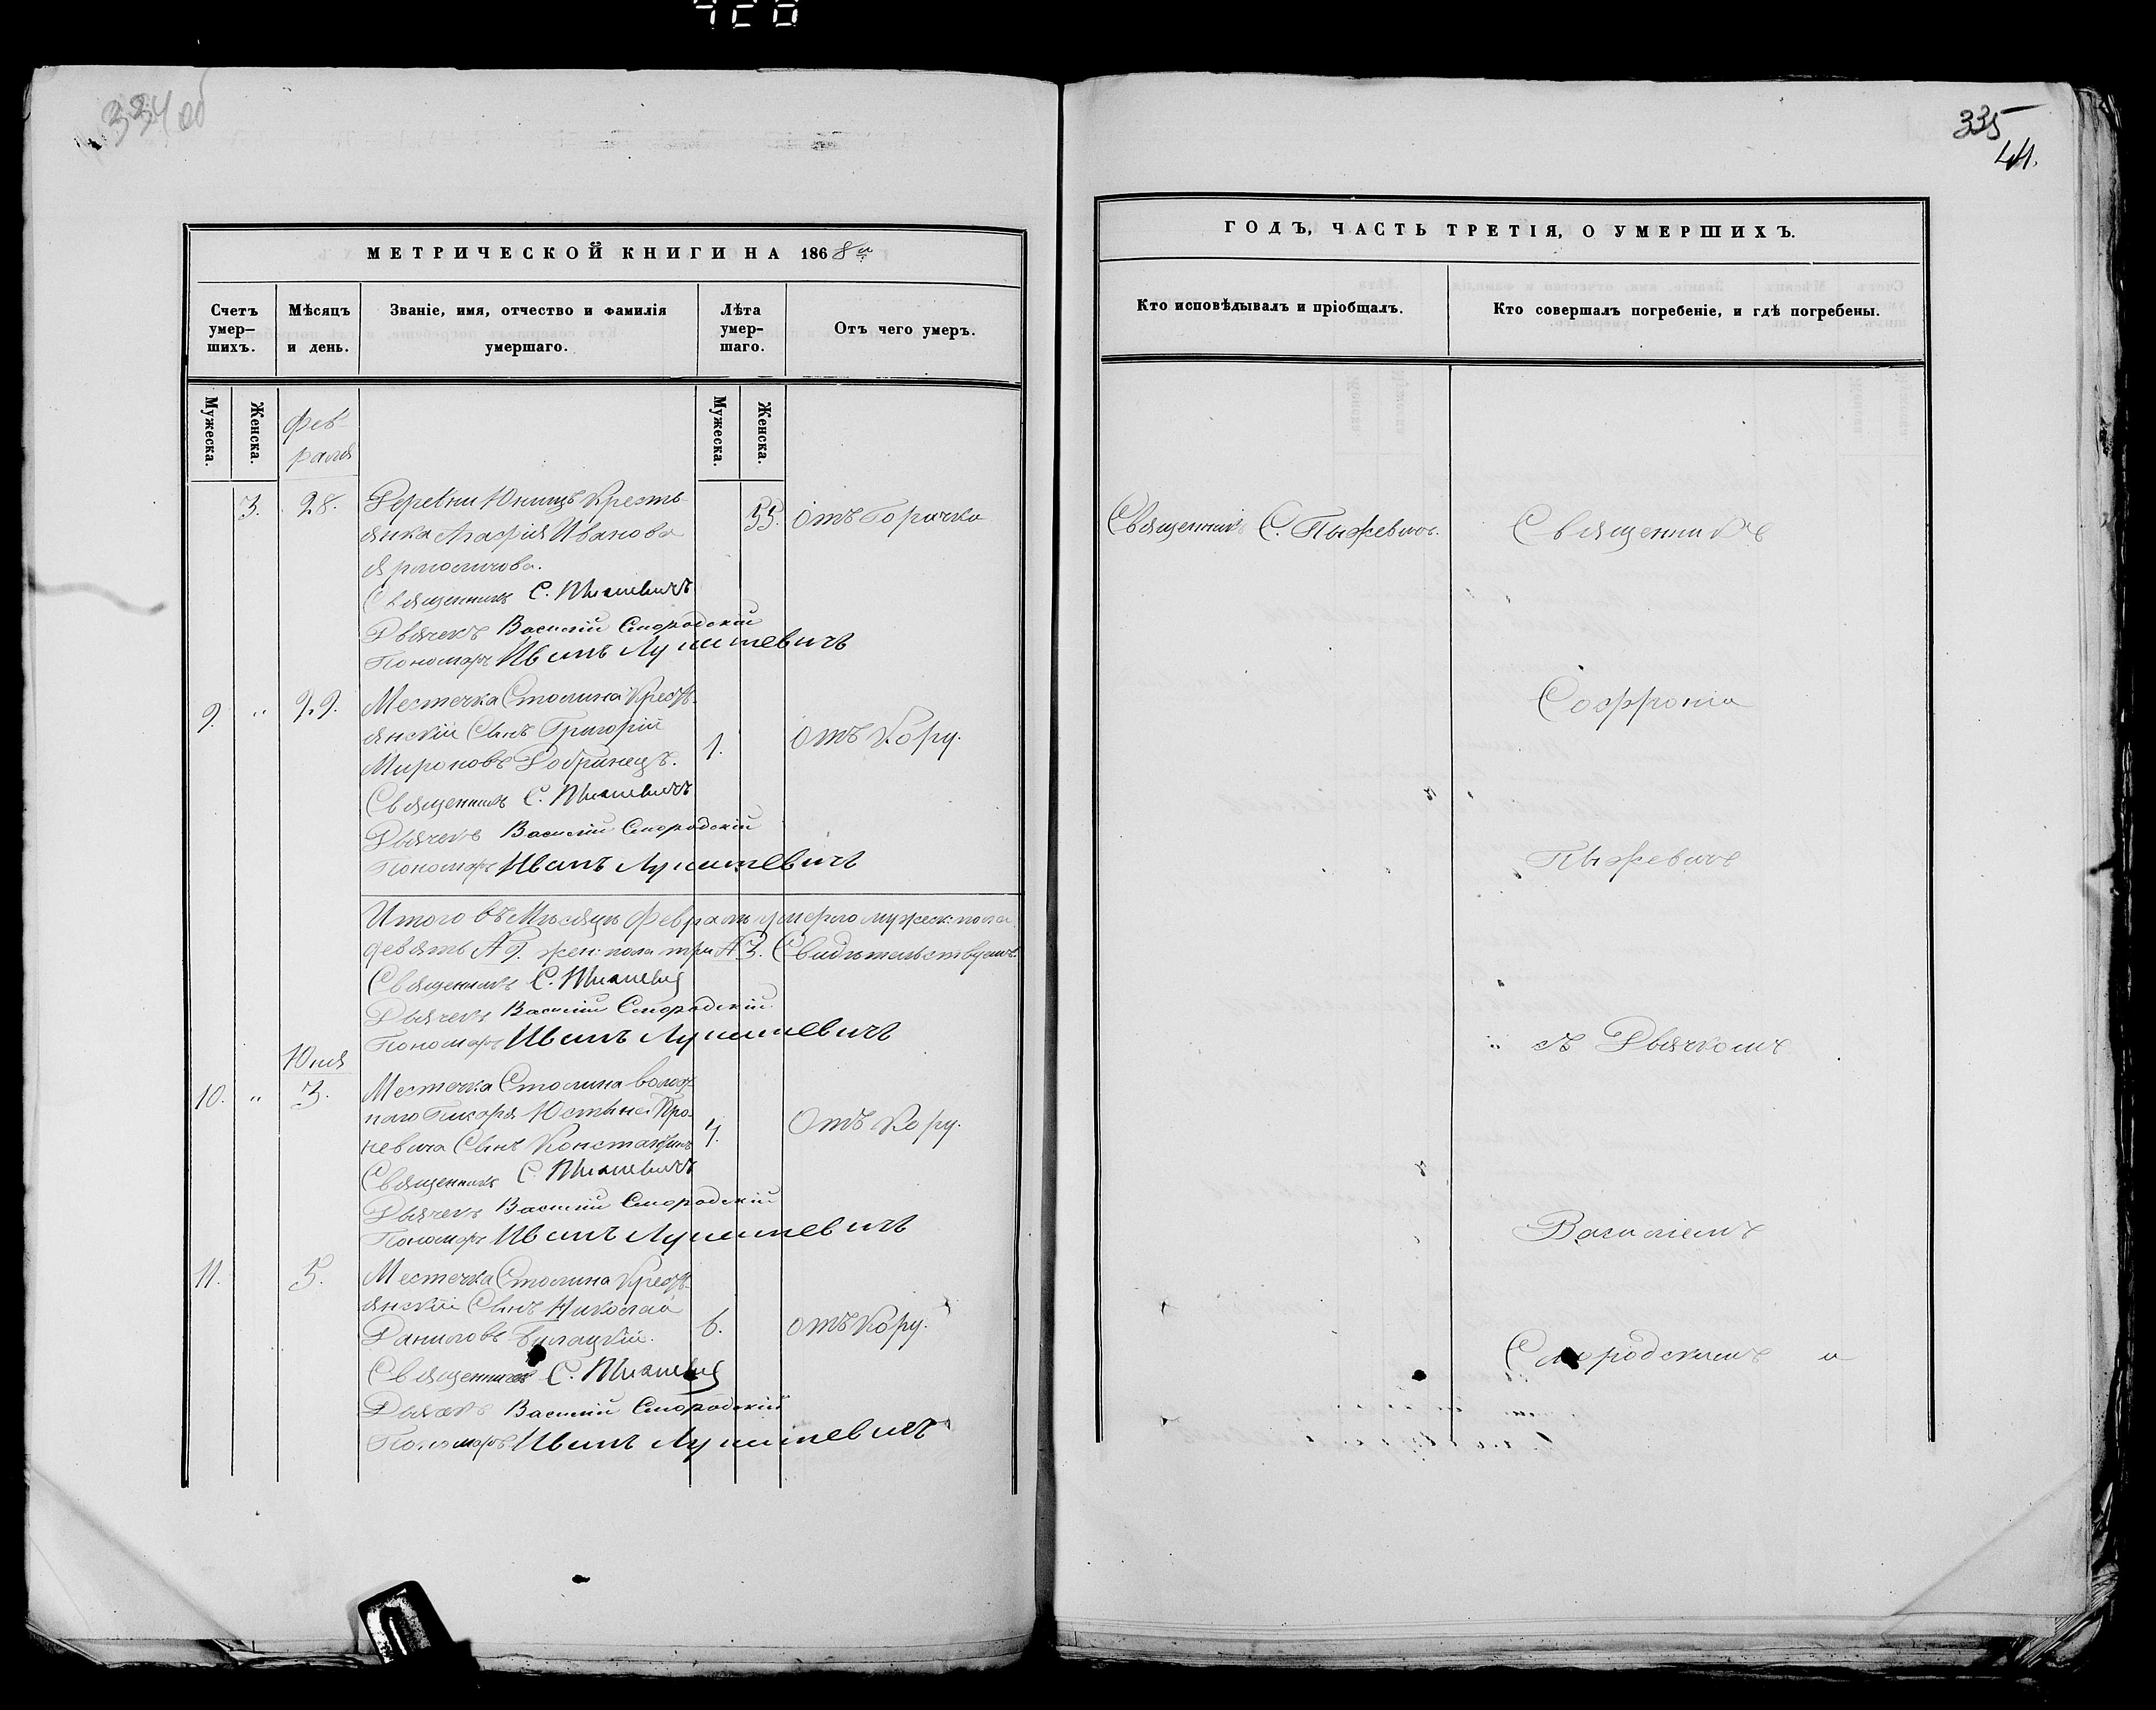 420
334 об
МЕТРИЧЕСКОЙ КНИГИ НА 1868й
Счетъ умер—шихъ.
Мѣсяцъ и день.
Званіе, имя, отчество и фамилія умершаго.
Лѣта умер—шаго.
Отъ чего умеръ.
Мужеска.
Женска.
Фев-
раля
Мужеска.
Женска.
3. 28. Деревни Юнищъ Кресть- 55. Отъ Горячки
янка Агафія Иванова
Священникъ С. Пыжевичъ
Дьячекъ Василій Смородскій
Пономарь Иванъ Лукашевичъ
9. " 29. Местечка Столина Кресть-
янскій Сынъ Григорій 1. Отъ Кору.
Мироновъ Добринецъ.
Священникъ С. Пыжевичъ
Дьячекъ Василій Смородскій
Пономарь Иванъ Лукашевичъ
Итого въ Мѣсяцѣ Февралѣ умерло мужеск: пола
девять № 9. жен: пола три № 3. Свидѣтельствуемъ:
Священникъ С. Пыжевичъ
Дьячекъ Василій Смородскій
Пономарь Иванъ Лукашевичъ
Юля
10. " 3. Местечка Столина волост-
наго Писаря Юстина
невича Сынъ Константинъ Отъ Кору.
Священникъ С. Пыжевичъ
Дьячекъ Василій Смородскій
Пономарь Иванъ Лукашевичъ
11. 5. Местечка Столина Кресть-
янскій Сынъ Николай
Даниловъ 6. Отъ Кору.
Священникъ С. Пыжевичъ
Дьячекъ Василій Смородскій
Пономарь Иванъ Лукашевичъ
335
41.
ГОДЪ, ЧАСТЬ ТРЕТІЯ, О УМЕРШИХЪ.
Кто исповѣдывалъ и пріобщалъ.
Кто совершалъ погребеніе, и гдѣ погребены.
Священникъ С. Пыжевичъ. Священникъ
Софроній
Пыжевичъ
съ Дьячкомъ
Василіемъ
Смородскимъ и